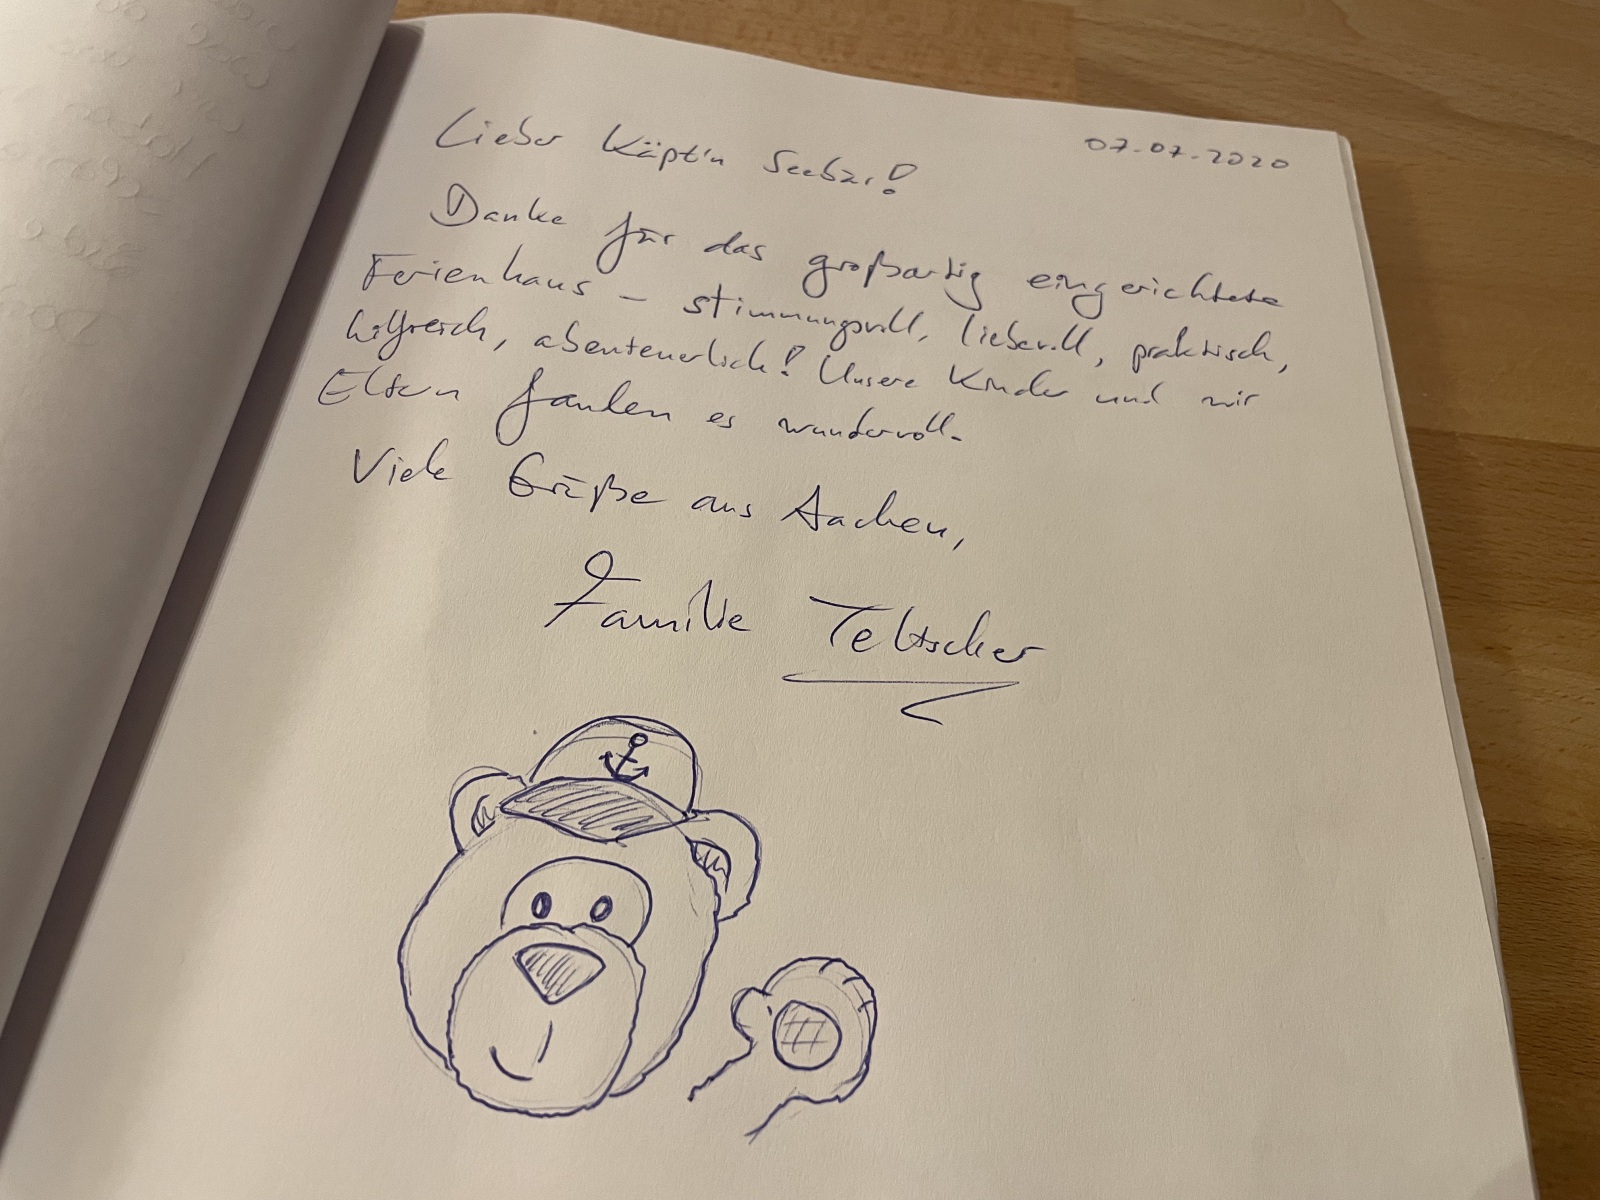 07.07.2020
Lieber Käpt'n Seebär!
Danke für das großartig eingerichtete
Ferienhaus – stimmungsvoll, liebevoll, praktisch,
hilfreich, abenteuerlich! Unsere Kinder und wir
Eltern fanden es wundervoll.
Viele Grüße aus Aachen,
Familie Teltscher